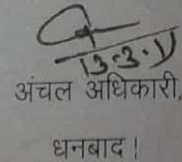 13.3.11
अंचल अधिकारी,
धनबाद।